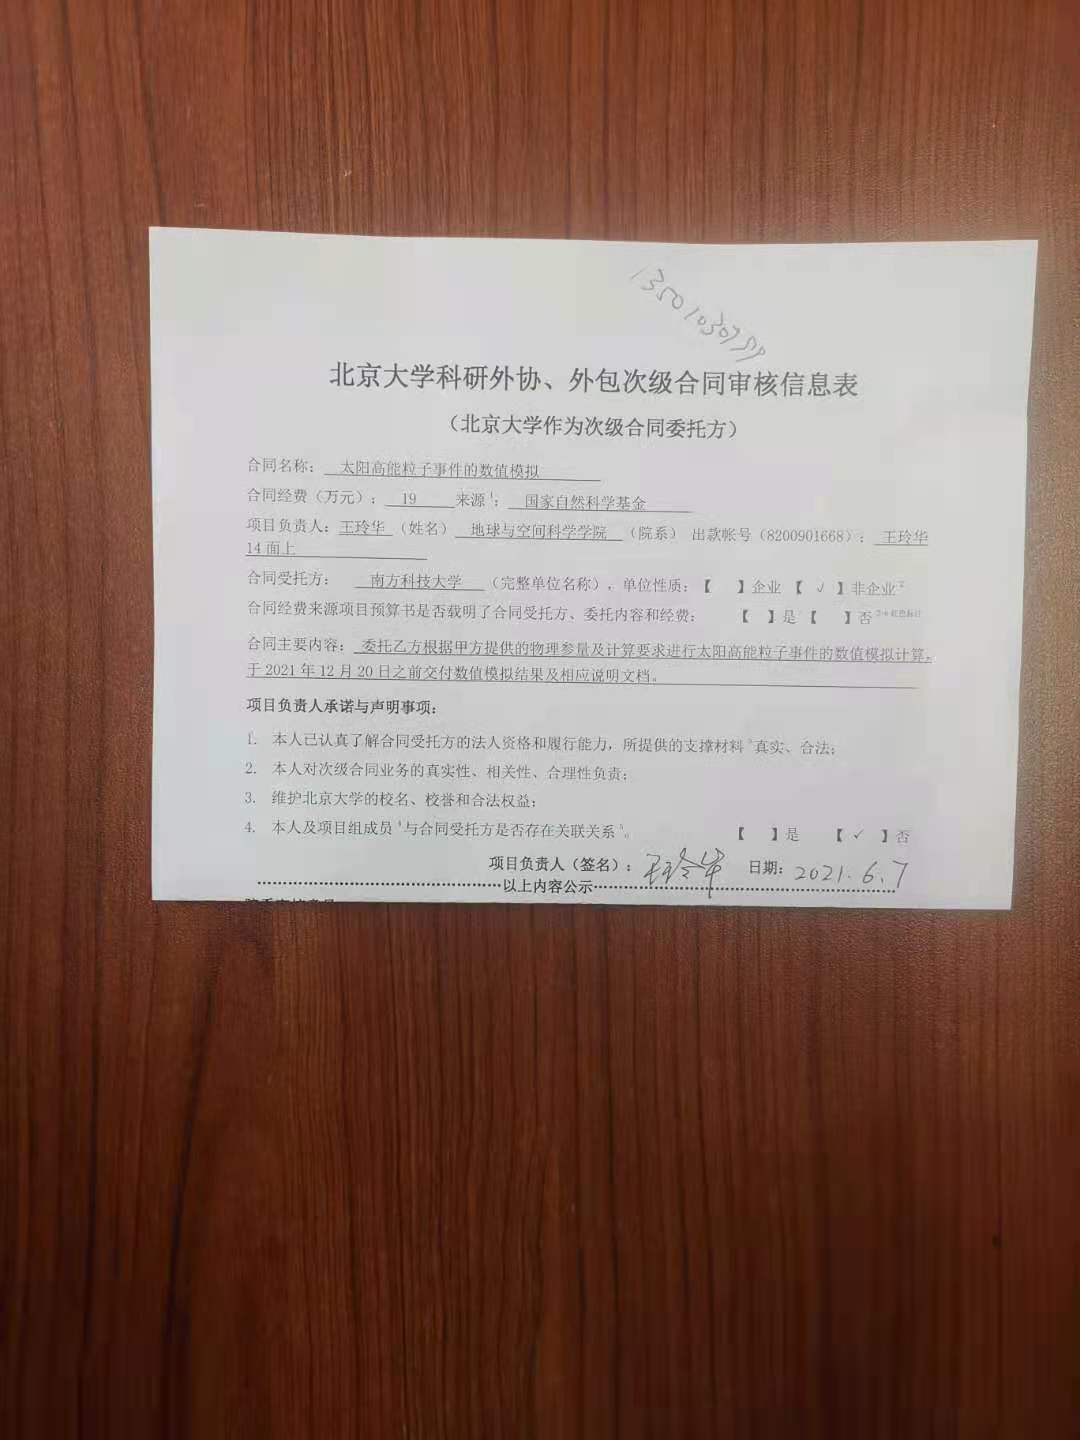 13501030799
北京大学科研外协、外包次级合同审核信息表
（北京大学作为次级合同委托方）
合同名称： 太阳高能粒子事件的数值模拟
合同经费（万元）： 19 来源1： 国家自然科学基金
项目负责人：王玲华（姓名） 地球与空间科学学院 （院系） 出款帐号（8200901668）： 王玲华
14面上
合同受托方： 南方科技大学 （完整单位名称），单位性质：【 】企业 【 ✓ 】非企业2
合同经费来源项目预算书是否载明了合同受托方、委托内容和经费： 【 】是 【 】否
合同主要内容： 委托乙方根据甲方提供的物理参量及计算要求进行太阳高能粒子事件的数值模拟计算，
于2021年12月20日之前交付数值模拟结果及相应说明文档。
项目负责人承诺与声明事项：
1. 本人已认真了解合同受托方的法人资格和履行能力，所提供的支撑材料3真实、合法；
2. 本人对次级合同业务的真实性、相关性、合理性负责；
3. 维护北京大学的校名、校誉和合法权益；
4. 本人及项目组成员4与合同受托方是否存在关联关系5。 【 】是 【 ✓ 】否
项目负责人（签名）：王玲华 日期：2021.6.7
以上内容公示